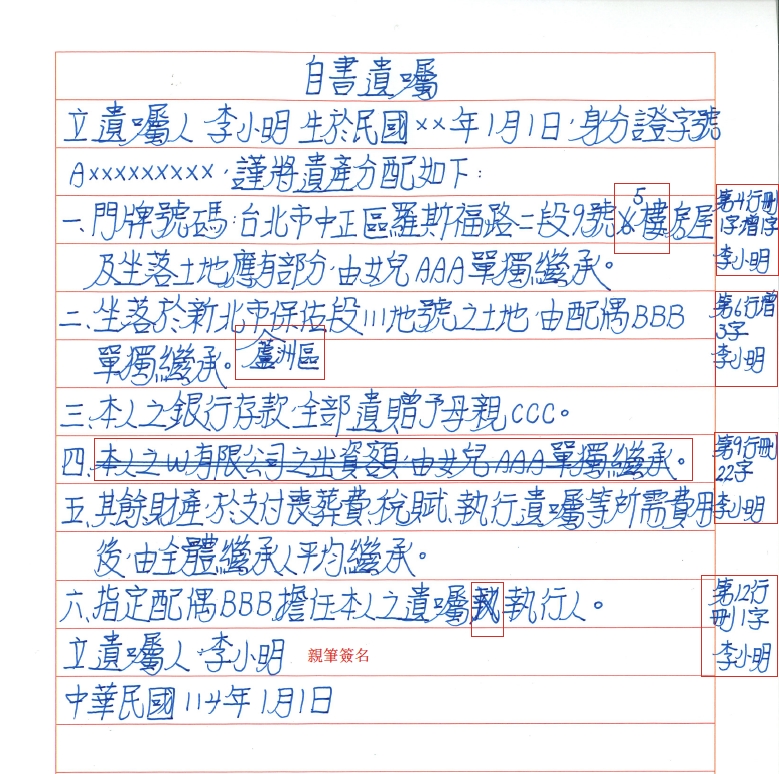 自書遺囑
立遺囑人李小明生於民國××年1月1日,身分證字號
A×××××××××,謹將遺產分配如下:
一、門牌號碼:台北市中正區羅斯福路二段9號6樓房屋
5
第4行刪
1字增1字
李小明
及坐落土地應有部分,由女兒AAA單獨繼承。
二、坐落於新北市保佑段111地號之土地,由配偶BBB
第6行增
3字
李小明
蘆洲區
單獨繼承。
三、本人之銀行存款,全部遺贈予母親CCC。
四、本人之W有限公司之出資額,由女兒AAA單獨繼承。
第9行刪
22字
李小明
五、其餘財產,於支付喪葬費、稅賦、執行遺囑等所需費用
後,由全體繼承人平均繼承。
六、指定配偶BBB擔任本人之遺囑執行人。
第12行
刪1字
李小明
立遺囑人:李小明 親筆簽名
中華民國114年1月1日